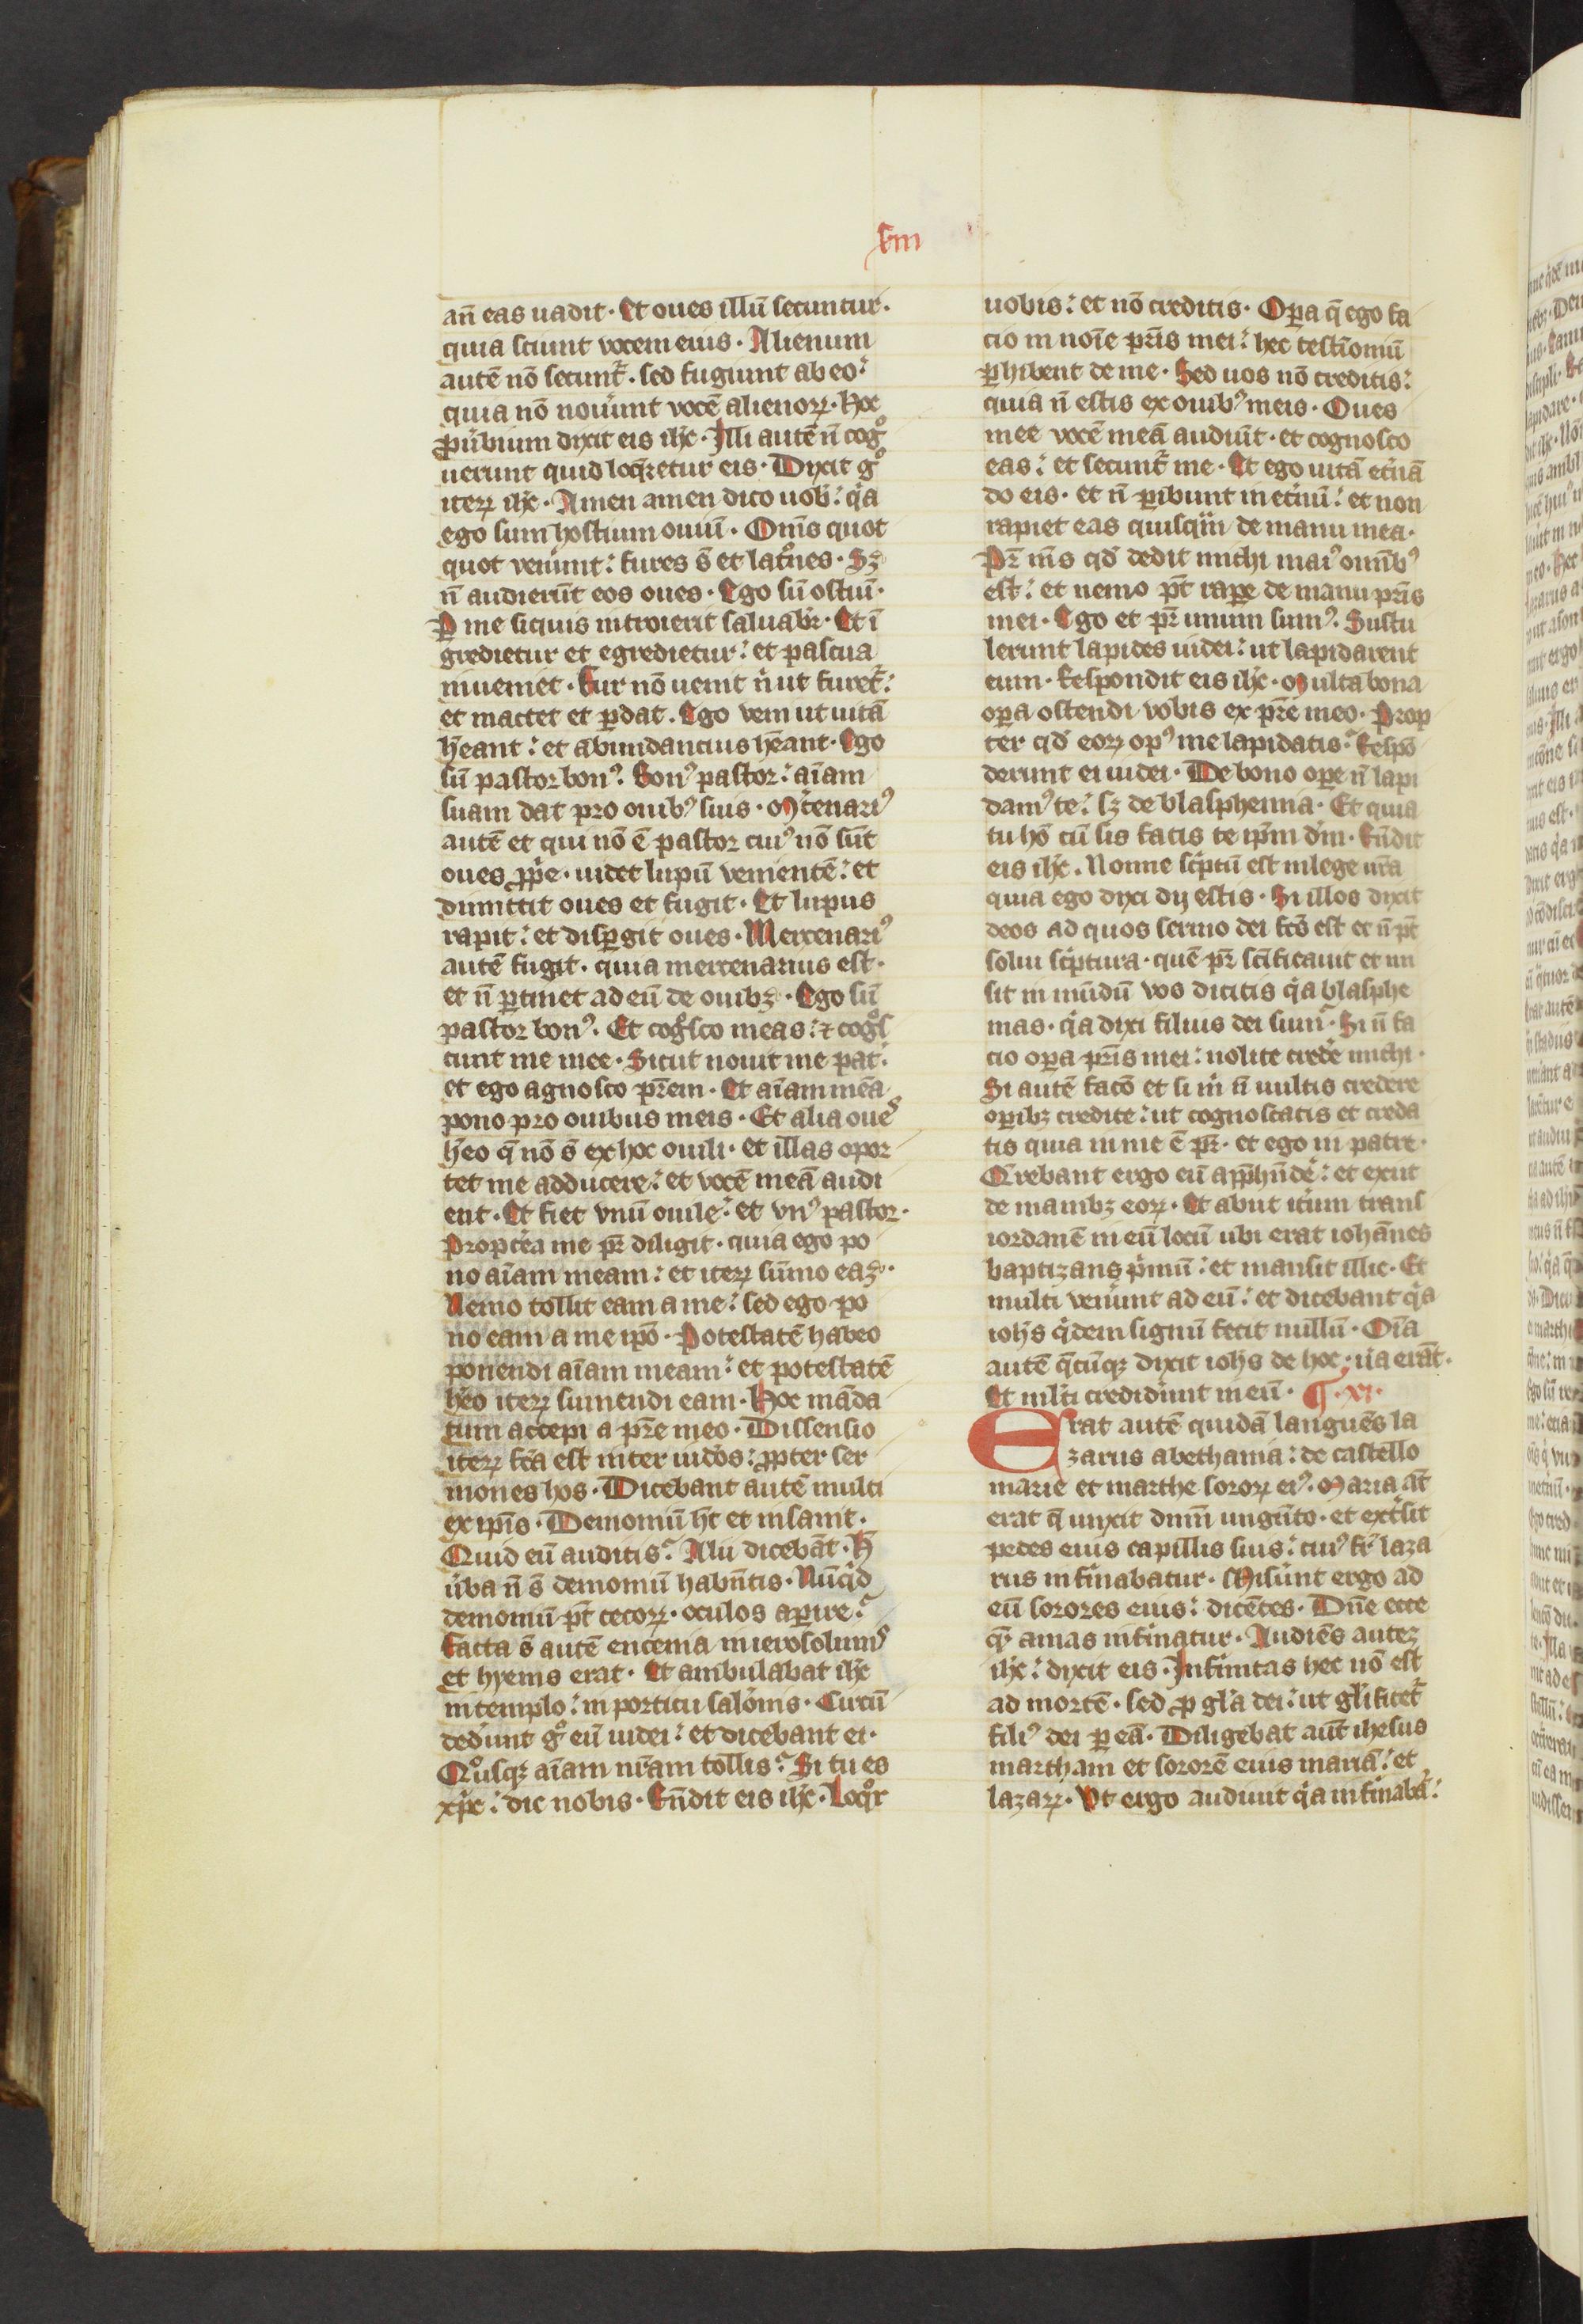 xiii
an̄ eas uadit · Et oues illū secuntur ·
quia sciunt vocem eius · Alienum
autē nō secunt᷑ · sed fugiunt ab eo ⁚
quia nō nouerunt vocē alienoꝝ · Hoc
ꝓuerbium dixit eis ihc̄ · Illi autē n̄ cog°
uerunt quid loqueretur eis · Dixit g°
iteꝝ ihc̄ · Amen amen dico uob᷒ ⁚ qͥa
ego sum hostium ouiū · Om̄s quot
quot venerunt ⁚ fures s̄ et latͦnes · Sꝫ
n̄ audierūt eos oues · Ego sū ostiū ·
ꝑ me siquis introierit saluabit᷑ · Et ī
gredietur et egredietur ⁚ et pascua
inueniet · Fur nō uenit nͥ ut furet᷑ ⁚
et mactet et ꝑdat · Ego veni ut uitā
hēant ⁚ et abundancius hēant · Ego
sū pastor bonꝰ · Bonꝰ pastor ⁚ aīam
suam dat pro ouibꝰ suis · Mercenariꝰ
autē et qui nō ē pastor cuiꝰ nō sūt
oues ꝓprie · uidet lupū venientē ⁚ et
dimittit oues et fugit · Et lupus
rapit ⁚ et disꝑgit oues · Mercenariꝰ
autē fugit · quia mercenarius est ·
et n̄ ꝑtinet ad eū de ouibꝫ · Ego sū
pastor bonꝰ · Et cogͦsco meas ⁚ ⁊ cogͦs
cunt me mee · Sicut nouit me pat᷑ ⁚
et ego agnosco pr̄em · Et aīam meā
pono pro ouibus meis · Et alia oues
hēo q̄ nō s̄ ex hoc ouili · et illas opor
tet me adducere ⁚ et vocē meā audi
ent · Et fiet vnū ouile ⁚ et vnꝰ pastor ·
Propterea me pr̄ diligit · quia ego po
no aīam meam ⁚ et iteꝝ sumo eaꝫ ·
Nemo tollit eam a me ⁚ sed ego po
no eam a me ip̄o · Potestatē habeo
ponendi aīam meam ⁚ et potestatē
hēo iteꝝ sumendi eam · Hoc māda
tum accepi a pr̄e meo · Dissensio
iteꝝ fc̄a est inter iudeos ⁚ ꝓpter ser
mones hos · Dicebant autē multi
ex ip̄is · Demoniū hȝ et insanit ·
Quid eū auditis ⁚ Alii dicebāt · H̄
ūba n̄ s̄ demoniū habētis · Nūqͥd
demoniū pt̄ cecoꝝ · oculos aꝑire ⁚
Facta s̄ autē encenia in ierosolimis
et hyems erat · Et ambulabat ihc̄
in templo ⁚ in porticu salomonis · Circū
dederunt gͦ eū iudei ⁚ et dicebant ei ·
Qͦusqꝫ aīam nr̄am tollis ⁚ Si tu es
xp̄c ⁚ dic nobis · Rn̄dit eis ihc̄ · Loqͦr
uobis ⁚ et nō creditis · Oꝑa q̄ ego fa
cio in noīe pr̄is mei ⁚ hec testimoniū
ꝑhibent de me · Sed uos nō creditis ⁚
quia n̄ estis ex ouibꝰ meis · Oues
mee vocē meā audiūt · et cognosco
eas ⁚ et secunt᷑ me · Et ego uitā et̄nā
do eis · et n̄ ꝑibunt in et̄nū ⁚ et non
rapiet eas quisqͣm de manu mea ·
Pr̄ m̄s qd̄ dedit michi maiꝰ omībꝰ
est ⁚ et nemo pt̄ raꝑe de manu pr̄is
mei · Ego et pr̄ unum sumꝰ · Sustu
lerunt lapides iudei ⁚ ut lapidarent
eum · Respondit eis ihc̄ · Multa bona
oꝑa ostendi vobis ex pr̄e meo · Prop
ter qd̄ eoꝝ opꝰ me lapidatis ⁚ Respō
derunt ei iudei · De bono oꝑe n̄ lapi
damꝰ te ⁚ sꝫ de blasphemia · Et quia
tu hō cū sis facis te ip̄m dm̄ · Rn̄dit
eis ihc̄ · Nonne scͥptū est in lege ur̄a
quia ego dixi dij estis · Si illos dixit
deos ad quos sermo dei fc̄s est et n̄ pt̄
solui scͥptura · quē pr̄ sc̄ificauit et mi
sit in mūdū vos dicitis qͥa blasphe
mas · qͥa dixi filius dei sum ⁚ Si n̄ fa
cio oꝑa pr̄is mei ⁚ nolite crede᷑ michi ·
Si autē facio et si m̄ n̄ uultis credere
oꝑibꝫ credite ⁚ ut cognoscatis et creda
tis quia in me ē pr̄ · et ego in patre ·
Qrebant ergo eū app̄hende᷑ ⁚ et exiit
de manibꝫ eoꝝ · Et abiit itͤum trans
iordanē in eū locū ubi erat iohānes
baptizans pͥmū ⁚ et mansit illic · Et
multi venerunt ad eū ⁚ et dicebant qͥa
ioh̄s qͥdem signū fecit nullū · Oīa
autē q̄cūqꝫ dixit ioh̄s de hoc · ūa erāt ·
Et ml̄ti crediderunt in eū · ¶ · xi ·
Erat autē quidā languēs la
zarus a bethania ⁚ de castello
marie et marthe sororꝝ eiꝰ · Maria at̄
erat q̄ unxit dnm̄ ungūto · et extersit
pedes eius capillis suis ⁚ cuiꝰ fr̄ laza
rus infirmabatur · Miserunt ergo ad
eū sorores eius ⁚ dicētes · Dn̄e ecce
qͤ amas infirmatur · Audiēs auteꝫ
ihc̄ ⁚ dixit eis · Infirmitas hec nō est
ad mortē · sed ꝓ gl̄a dei ⁚ ut gl̄ificet᷑
filiꝰ dei ꝑ eā · Diligebat aūt ihesus
martham et sororē eius mariā ⁚ et
lazaꝝ · Vt ergo audiuit qͥa infirmaba᷑ ⁚